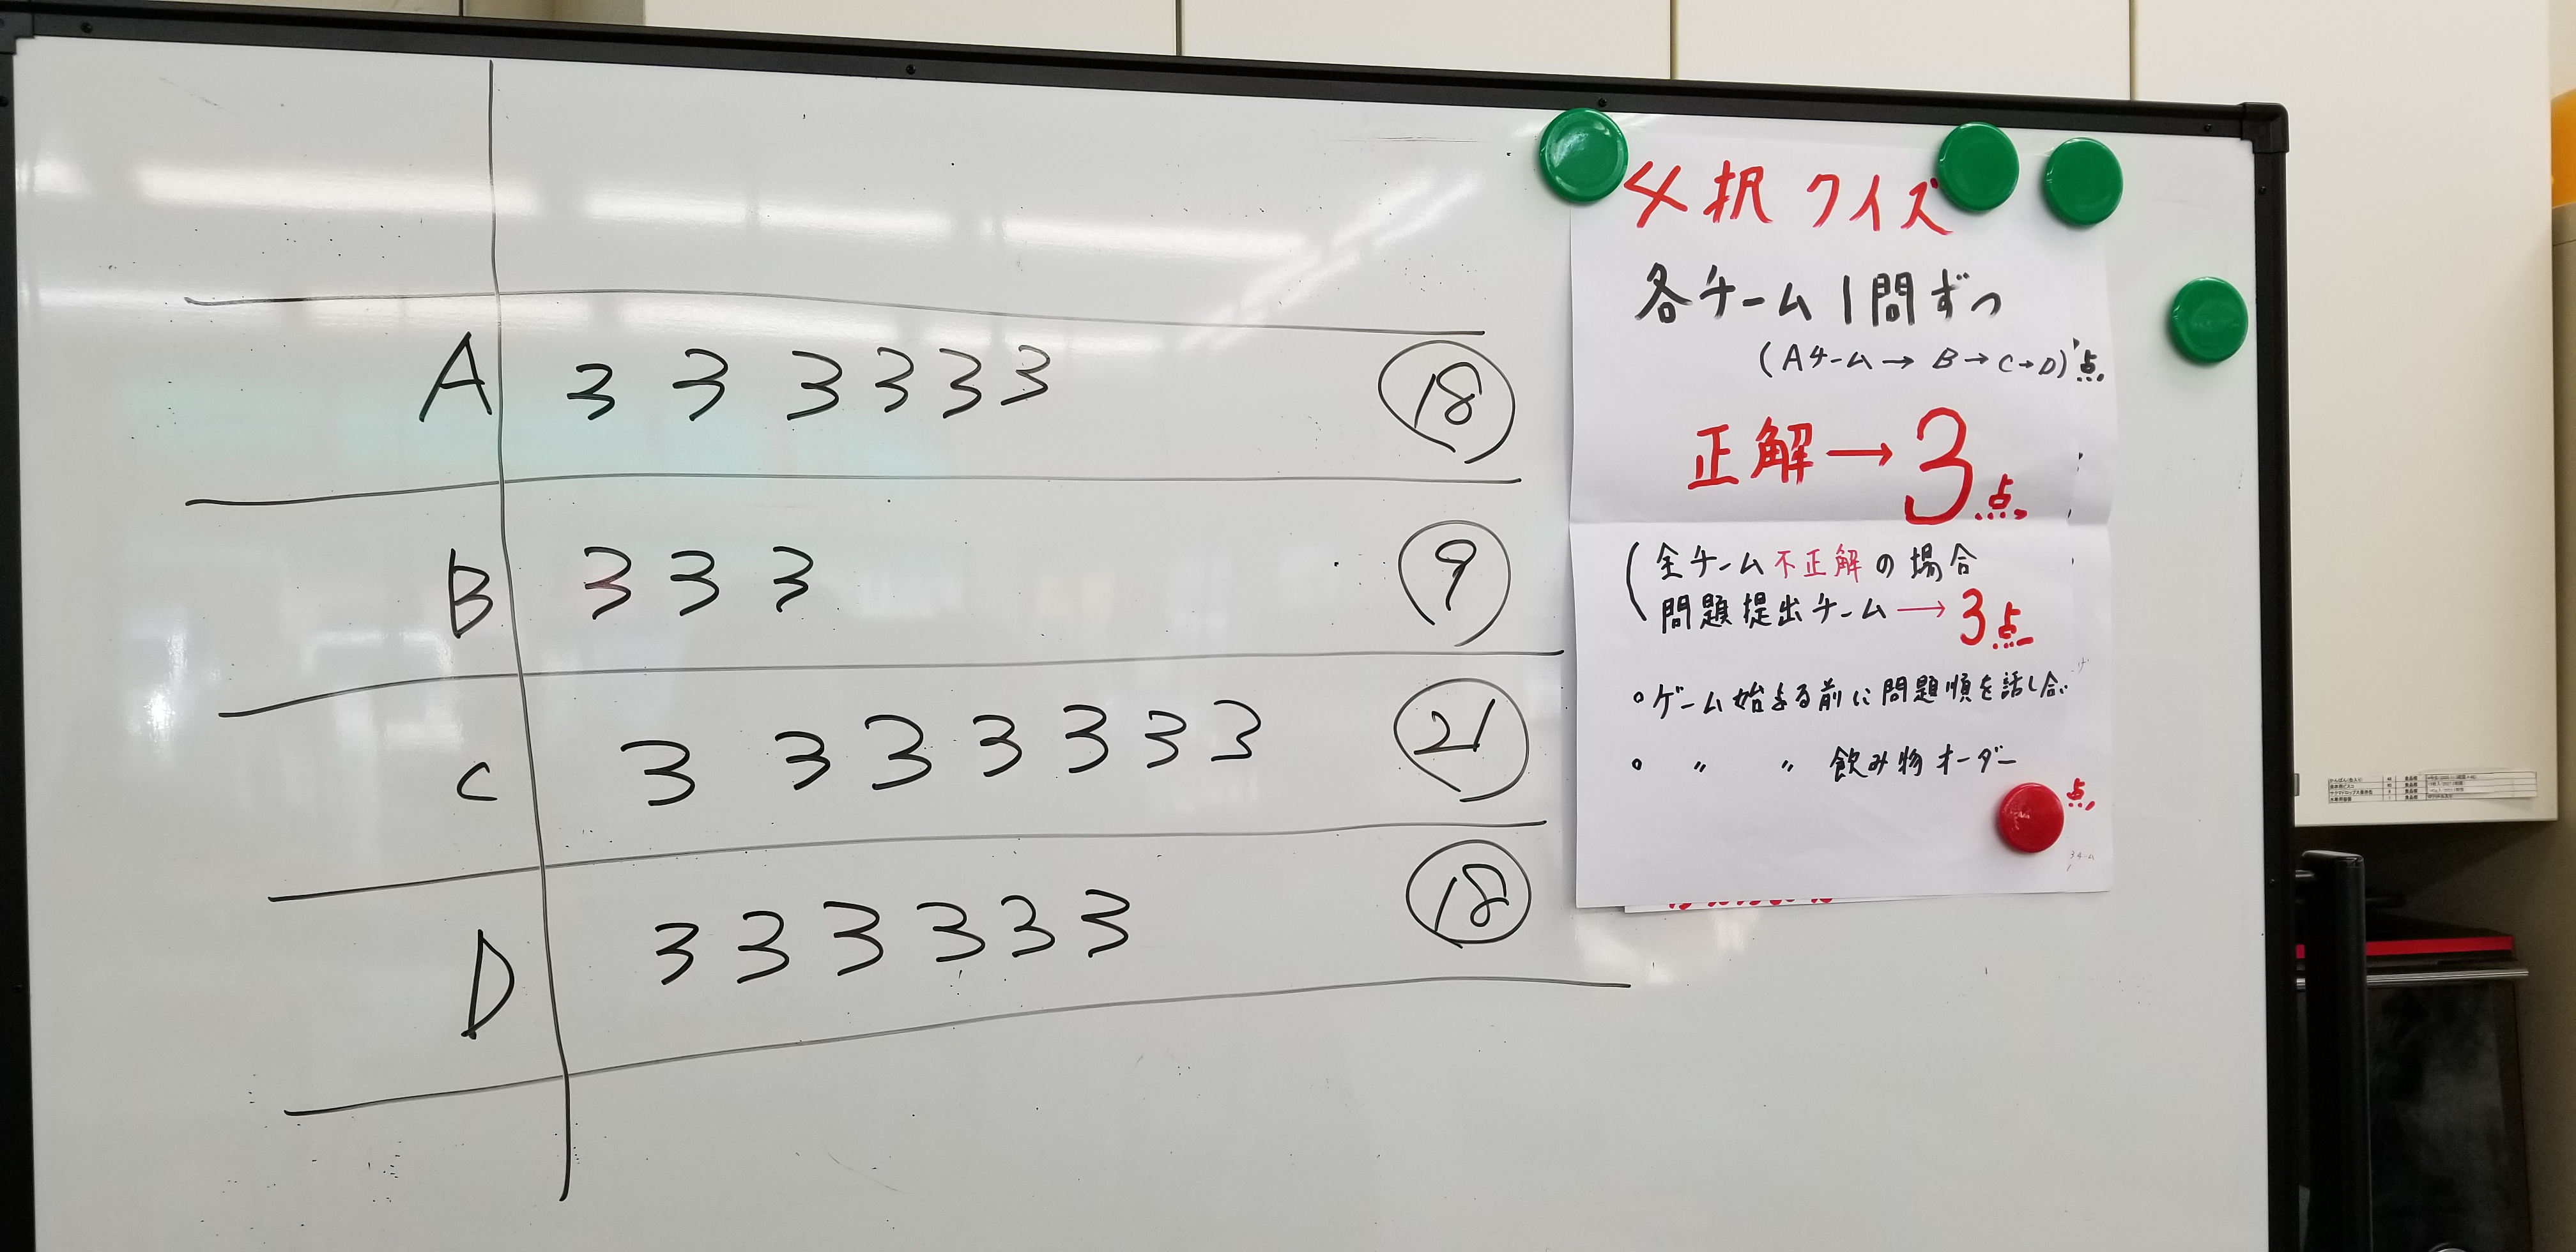 A 3 3 3 3 3 3 18
B 3 3 3 9
C 3 3 3 3 3 3 3 21
D 3 3 3 3 3 3 18
4択クイズ
各チーム1問ずつ
(Aチーム→B→C→D)
点
正解→3点
全チーム不正解の場合
問題提出チーム→3点
○ゲーム始まる前に問題順を話し合い
○ 〃 〃 飲み物オーダー
点